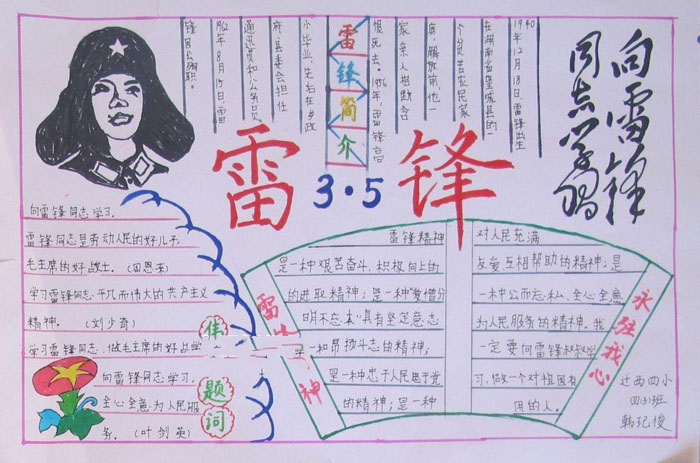 向雷锋
同志学习
1940年12月18日,雷锋出生
在湖南省望城县的一
个贫苦农民家
庭,解放前,他一
家亲人相继含
恨死去。1956年,雷锋高
雷锋简介
小毕业,先后在乡政
府,县委会担任
通迅员和公务员。
62年8月15日,雷
锋因公殉职。
雷锋
3·5
向雷锋同志学习.
雷锋同志是劳动人民的好儿子.
毛主席的好战士。(周恩来)
学习雷锋同志平凡而伟大的共产主义
精神。(刘少奇)
学习雷锋同志,做毛主席的好战
向雷锋同志学习,
全心全意为人民服
务。(叶剑英)
佳
题词
雷
神
雷锋精神
是一种艰苦奋斗、积极向上的
的进取精神;是一种爱憎分
明不忘本具有坚定意志
和昂扬斗志的精神;
是一种忠于人民忠于党
的精神;是一种
对人民充满
友爱互相帮助的精神;是
一种公而忘私、全心全意
为人民服务的精神。我
一定要向雷锋叔叔学
习,做一个对祖国有
用的人。
永驻我心
迁西四小
四(3)班
韩纪俊